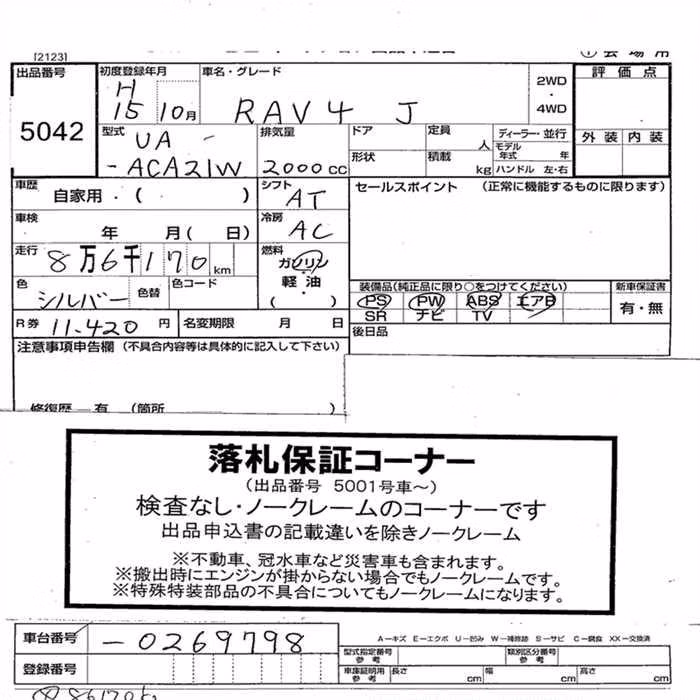 [2123]
① 会場用
出品番号 5042
初度登録年月 H15 10月
車名・グレード RAV4 J
2WD・4WD
評価点
外装 内装
型式 UA - -ACA21W
排気量 2000cc
ドア
定員 人
ディーラー・並行
形状
積載 kg
モデル年式 年
ハンドル 左・右
車歴 自家用・( )
シフト AT
セールスポイント (正常に機能するものに限ります)
車検 年 月( 日)
冷房 AC
走行 8万6千170km
燃料 ガソリン 軽油 ( )
色 シルバー 色替 色コード
装備品(純正品に限り○をつけてください)
PS PW ABS エアB
SR ナビ TV
新車保証書 有・無
R券 11,420円
名変期限 月 日
後日品
注意事項申告欄 (不具合内容等は具体的に記入して下さい)
修復歴 - 有 (箇所 )
落札保証コーナー
(出品番号 5001号車~)
検査なし・ノークレームのコーナーです
出品申込書の記載違いを除きノークレーム
※不動車、冠水車など災害車も含まれます。
※搬出時にエンジンが掛からない場合でもノークレームです。
※特殊特装部品の不具合についてもノークレームになります。
車台番号 -0269798
A-キズ E-エクボ U-凹み W-補修跡 S-サビ C-腐食 XX-交換済
型式指定番号 参考
類別区分番号 参考
登録番号
車庫証明用 参考 長さ cm 幅 cm 高さ cm